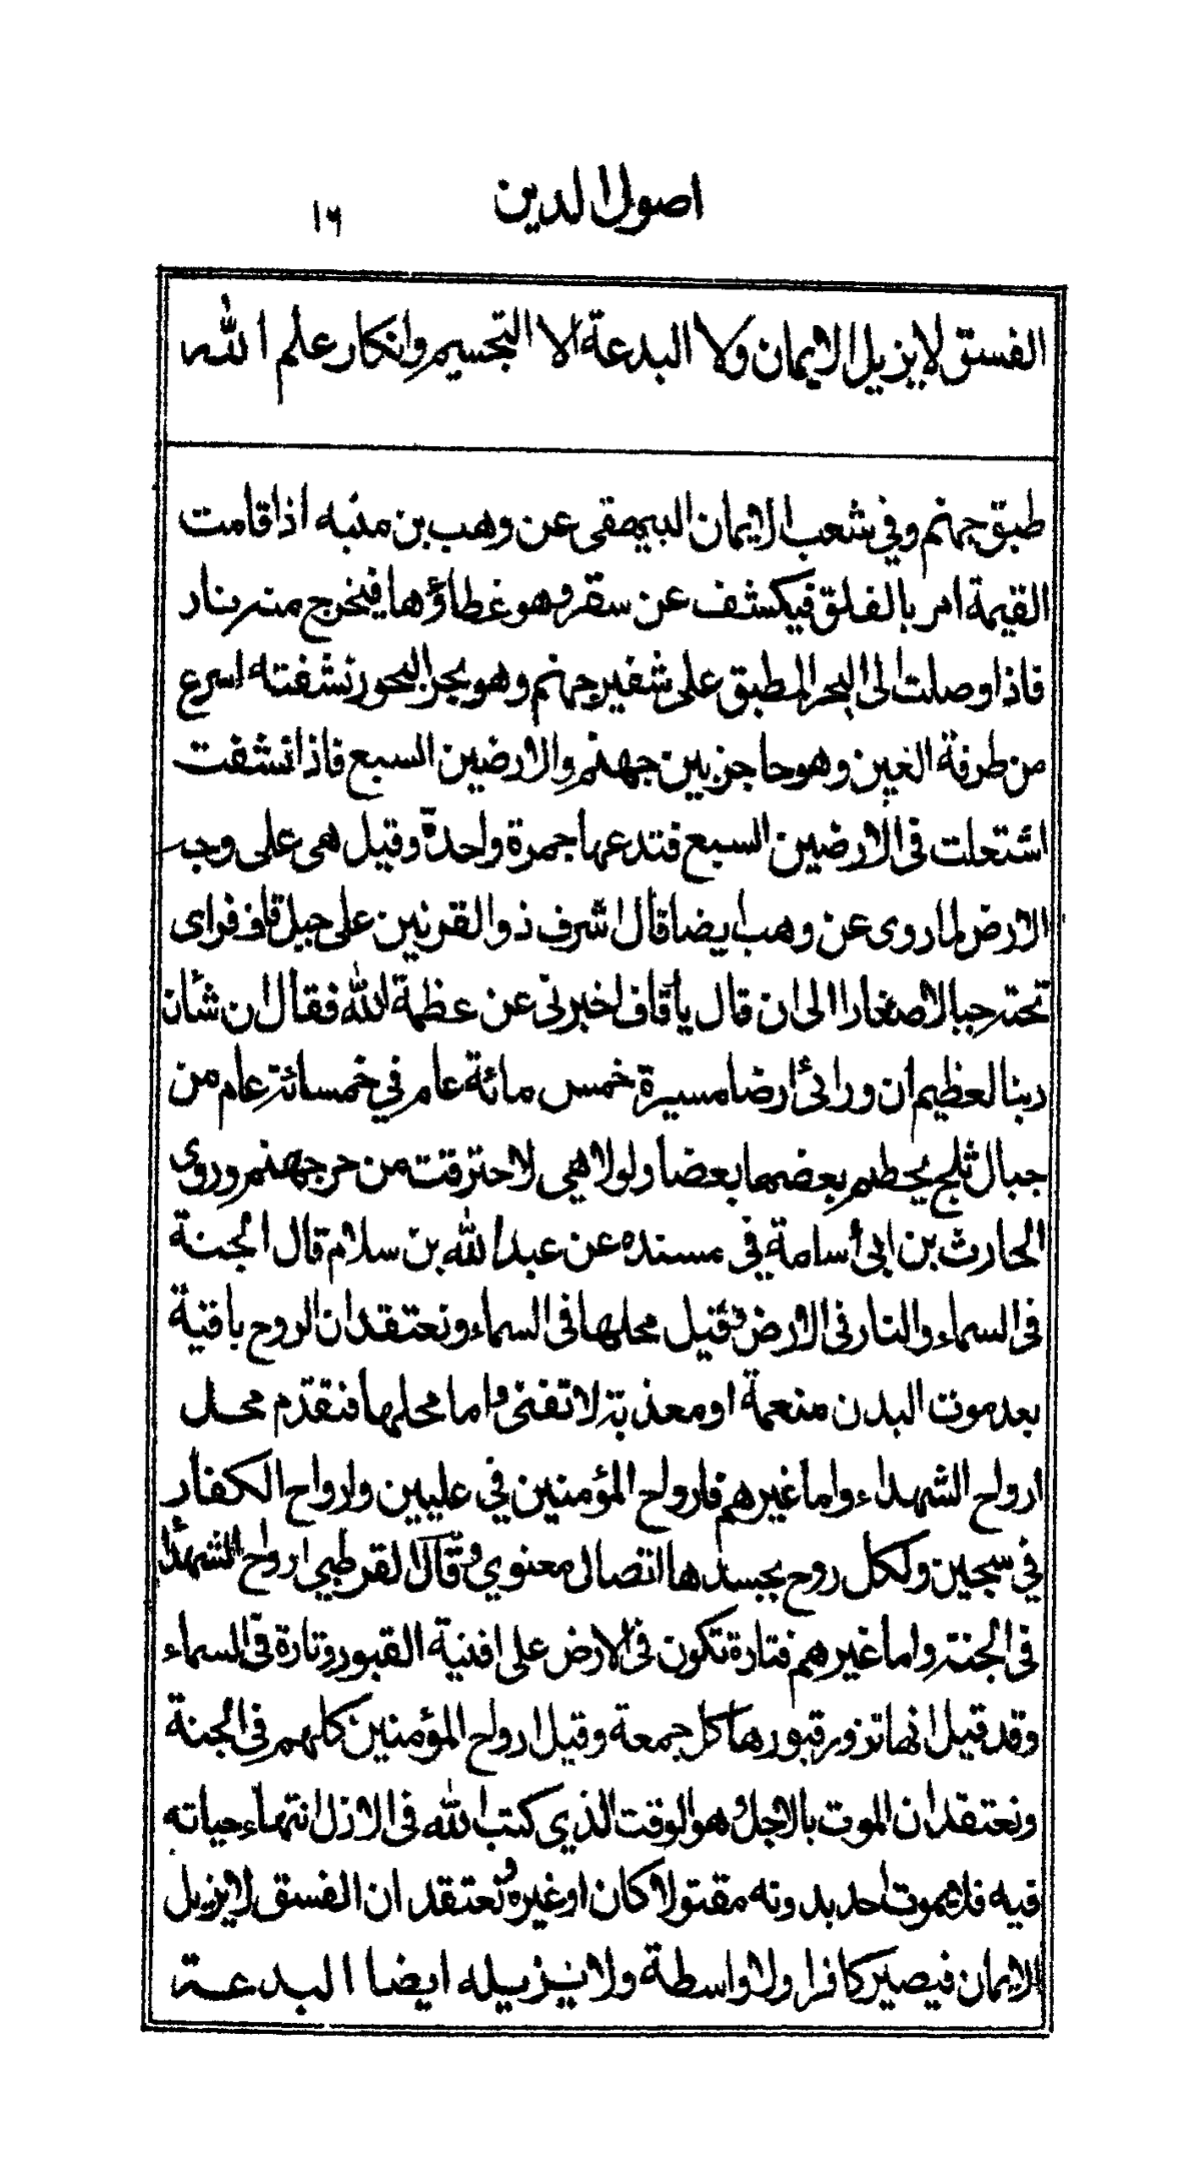 اصول الدين
١٦
الفسق لا يزيل الايمان ولا البدعة الا التجسيم وانكار علم الله
طبق جهنم وفي شعب الايمان للبيهقى عن وهب بن منبه اذا قامت
القيمة امر بالفلق فيكشف عن سقر وهو غطاؤها فيخرج منه نار
فاذا وصلت الى البحر المطبق على شفير جهنم وهو بحر البحور نشفته اسرع
من طرفة العين وهو حاجز بين جهنم والارضين السبع فاذا نشفت
اشتعلت فى الارضين السبع فتدعها جمرة واحدة وقيل هى على وجه
الارض لما روى عن وهب ايضا قال اشرف ذو القرنين على جبل قاف فراى
تحته جبالا صغارا الى ان قال يا قاف اخبرنى عن عظمة الله فقال ان شأن
ربنا لعظيم ان ورائى ارضا مسيرة خمس مائة عام في خمسمائة عام من
جبال ثلج يحطم بعضها بعضا ولولا هي لاحترقت من حر جهنم وروى
الحارث بن ابى أسامة فى مسنده عن عبد الله بن سلام قال الجنة
فى السماء والنار فى الارض وقيل محلها فى السماء ونعتقد ان الروح باقية
بعد موت البدن منعمة او معذبة لا تفنى واما محلها فتقدم محل
ارواح الشهداء واما غيرهم فارواح المؤمنين في عليين وارواح الكفار
في سجين ولكل روح بجسدها اتصال معنوي وقال القرطبي ارواح الشهدا
فى الجنة واما غيرهم فتارة تكون فى الارض على افنية القبور وتارة فى السماء
وقد قيل انها تزور قبورها كل جمعة وقيل ارواح المؤمنين كلهم فى الجنة
ونعتقد ان الموت بالاجل وهو الوقت الذي كتب الله فى الازل انتهاء حياته
فيه فلا يموت احد بدونه مقتولا كان او غيره ونعتقد ان الفسق لا يزيل
الايمان فيصير كافرا ولا واسطة ولا يزيله ايضا البدعة